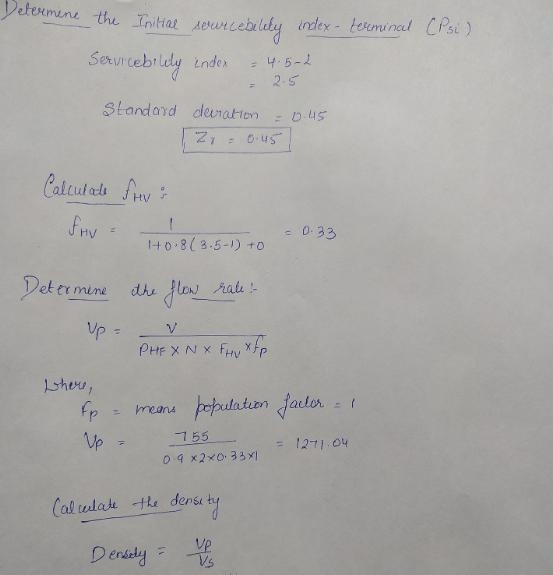 Determine the Initial servicebility index - terminal (Psi)
Servicebility index = 4.5-2
= 2.5
Standard deviation = 0.45
Zr = 0.45
Calculate fHV :
fHV = 1 / 1+0.8(3.5-1)+0 = 0.33
Determine the flow rate :-
Vp = V / PHF x N x FHV x fp
Where,
Fp = means population factor = 1
Vp = 755 / 0.9 x2x0.33x1 = 1271.04
Calculate the density
Density = Vp / Vs